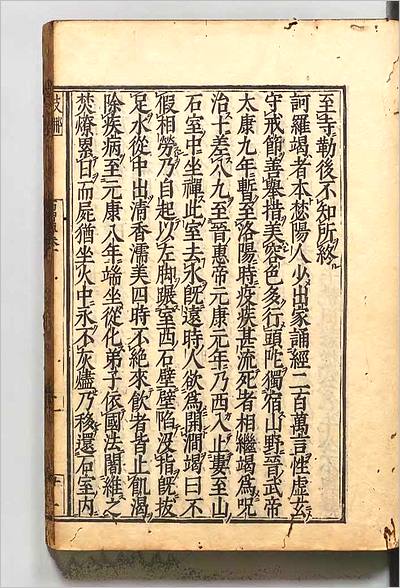 至寺勒後不知所終
訶羅竭者本樊陽人少出家誦經二百萬言性虛玄
守戒節善舉措美容色多行頭陀獨宿山野晉武帝
太康九年暫至洛陽時疫疾甚流死者相繼竭爲呪
治十差八九至晉惠帝元康元年乃西入止婁至山
石室中坐禪此室去水既遠時人欲爲開澗竭曰不
假相勞乃自起以左脚蹍室西石壁壁陷沒指既拔
足水從中出清香濡美四時不絕來飲者皆止飢渴
除疾病至元康八年端坐從化弟子依國法闍維之
焚燎累日而屍猶坐火中永不灰燼乃移還石室内